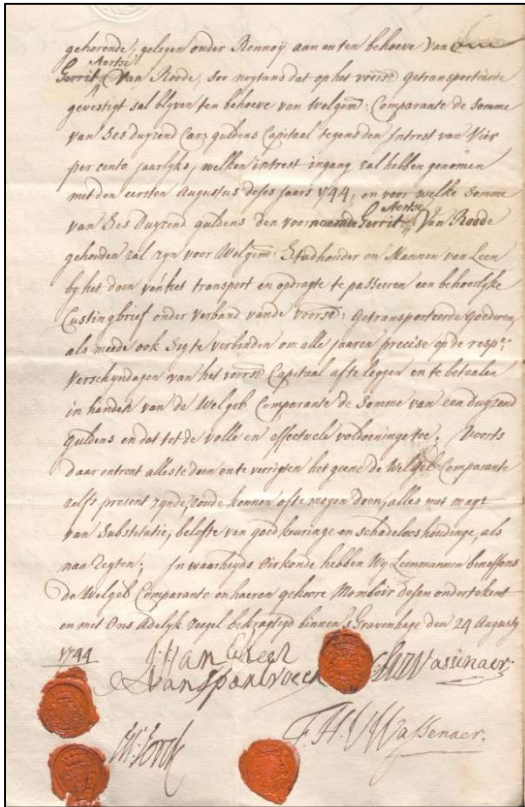 gehorende, gelegen onder Rennoij aan en ten behoeve van
Aertse
Gerrit van Roode, soo nogtans dat op het voors: getransporteerde
gevestigt sal blyven ten behoeve van Welgem: Comparante de Somme
van Ses duyzend Car: guldens Capitaal tegens den Intrest van Vier
per cento jaarlyks, welken intrest ingang zal hebben genomen
met den eersten Augustus deses jaars 1744, en voor welke Somme
Aertse
van Ses Duyzend guldens den voornoemde Gerrit van Roode
gehouden zal zyn voor Welgem: Stadhouder en Mannen van Leen
by het doen van het transport en opdragte te passeeren een behoorlyke
Custingbrief onder verband vande voors: getransporteerde goederen,
als meede ook sig te verbinden om alle jaaren precise op de resp:
verschyndagen van het voors: Capitaal af te leggen en te betaalen
in handen van de Welgeb Comparante de Somme van een duyzend
guldens en dat tot de volle en effectuele voldoeninge toe; Voorts
daar ontrent alles te doen en te verrigten het geene de Welgeb Comparante
zelfs present zynde, zoude konnen ofte mogen doen, alles met magt
van Substitutie, belofte van goedkeuringe en schadeloshoudinge, als
naa Regten; In waarheyds Oirkonde hebben Wy Leenmannen beneffens
de Welgeb Comparante en haeren gekoore Momboir desen ondertekent
en met Ons Adelyk Zegel bekragtigt binnen 's Gravenhage den 24 Augusty
1744
van Wassinaer.
F. H. V. Wassenaer.